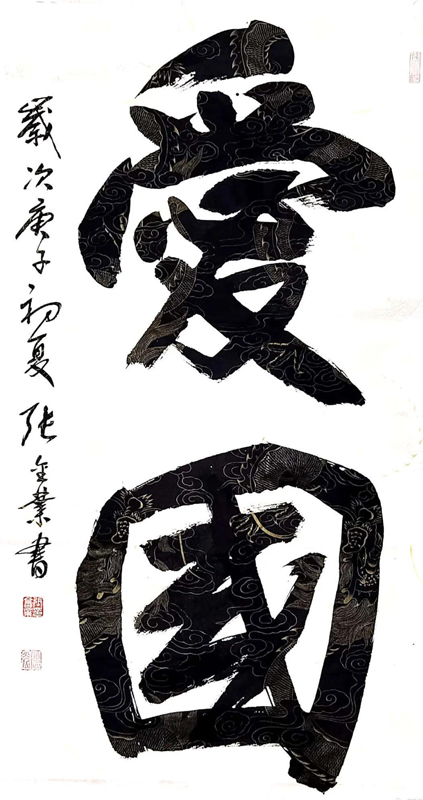 愛國
歲次庚子初夏 張金業書